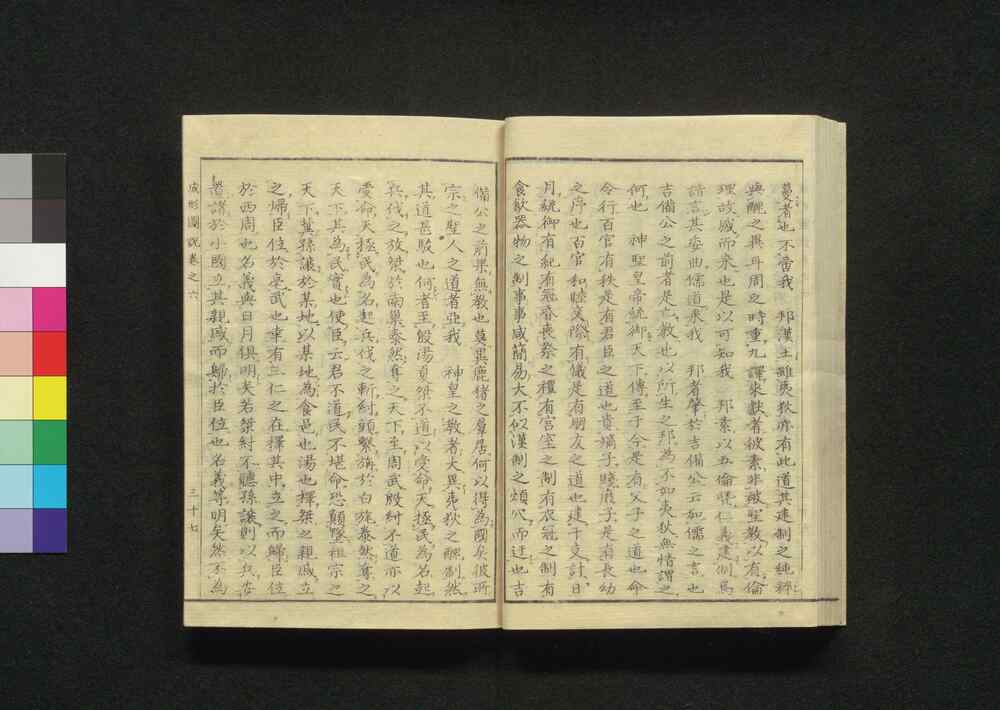 蔓者也不當我 邦漢土雖夷狄亦有此道其建制之純粹
與醜之異耳周之時重九譯來獻者彼素非被聖教以有倫
理故臧而來也是以可知我 邦素以五倫
請言其委曲儒道來我 邦者肇於吉備公云如儒之言也
吉備公之前者是亡教也以所生之邦為不如夷狄無情謂之
何也 神聖皇帝統御天下傳至于今是有父子之道也命
令行百官有秩是有君臣之道也貴嫡子賤庶子是有長幼
之序也百官和睦交際有儀是有朋友之道也建干支計日
月統御有紀有冠昏喪祭之禮有宮室之制有衣冠之制有
食飲器物之制事事咸簡易大不似漢制之煩冗而迂也吉
備公之前果無教也莫異鹿猪之羣居何以得為國矣彼所
宗之聖人之道者亞我 神皇之教者大異夷狄之醜制然
其道甚駁也何者王殷湯夏桀不道以受命天極民為名起
兵伐之放桀於南巢泰然奪之天下至周武殷紂不道亦以
受命天極民為名起兵伐之斬紂頭繫旗於白旄泰然奪之
天下其為民實也使臣云君不道民不堪命恐顛墜祖宗之
天下冀孫讓於某地以某地為食邑也湯也擇桀之親戚立
之歸臣位於亳武也幸有三仁之在擇其中立之而歸臣位
於西周也名義與日月俱明夫若桀紂不聽孫讓則以兵
置諸於小國立其親戚而歸於臣位也名義等明矣然不為
成形圖說卷之六 三十七